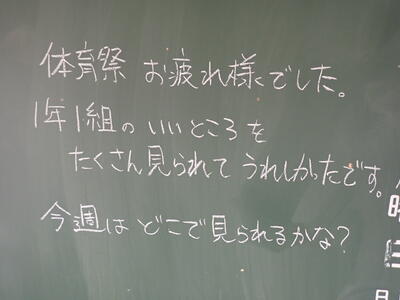 体育祭 お疲れ様でした。
1年1組の いいところを
たくさん見られて うれしかったです。
今週は どこで見られるかな?